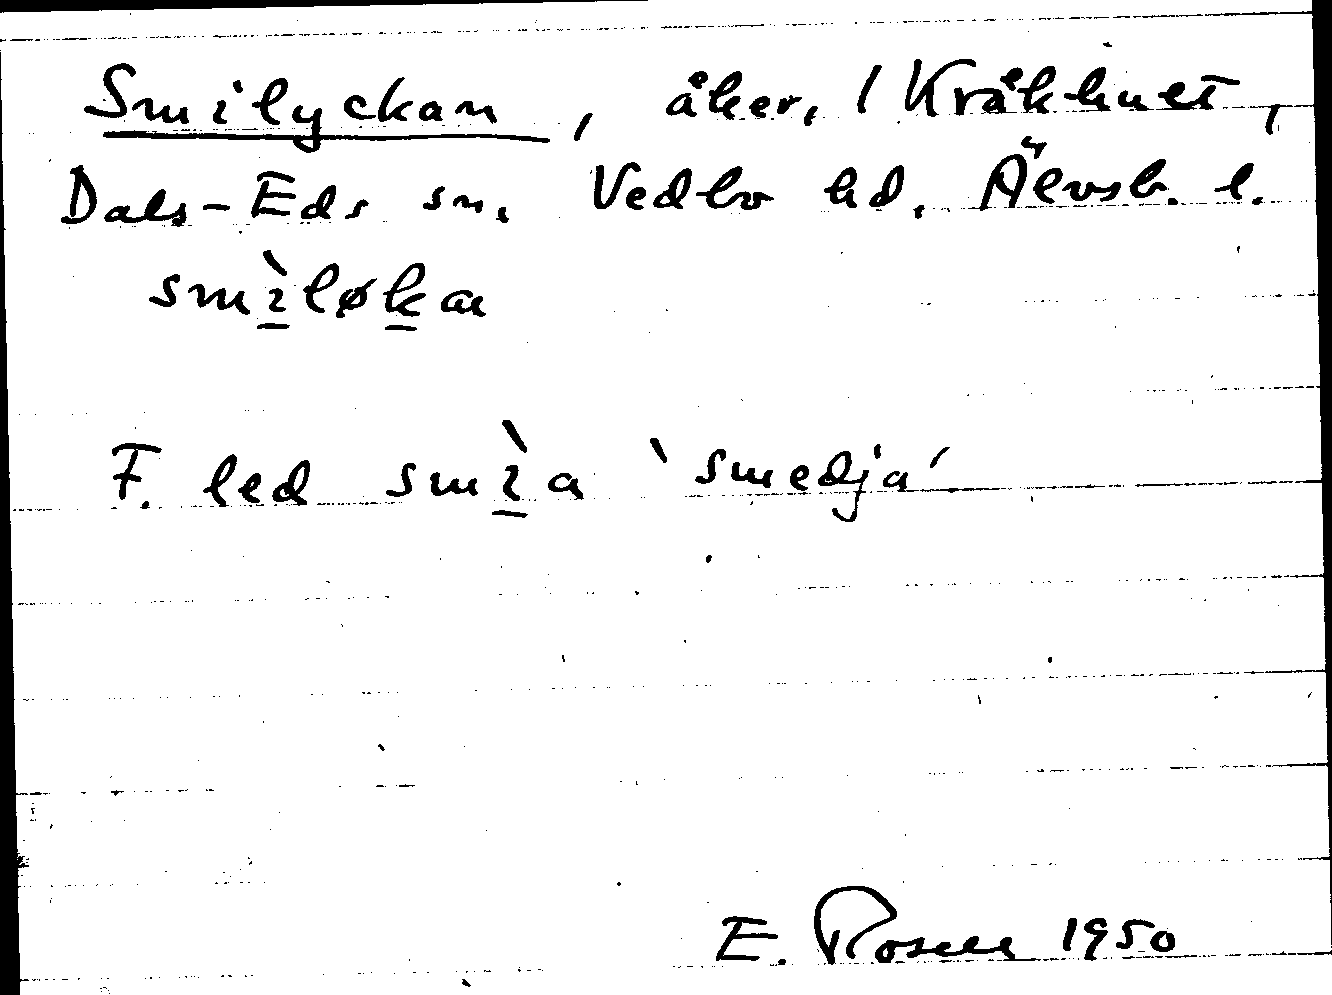 Smilyckan, åker, 1 Kråkhult,
Dals-Eds sn. Vedbo hd. Älvsb. l.
smìløka
F. led smìa 'smedja'
E. Rosell 1950